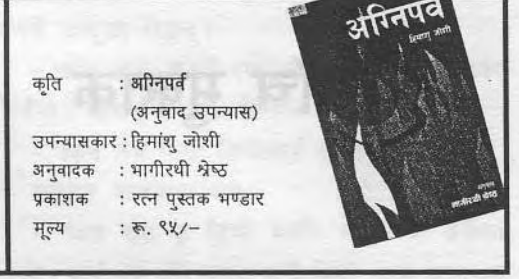 कृति : अग्निपर्व
(अनुवाद उपन्यास)
उपन्यासकार : हिमांशु जोशी
अनुवादक : भागीरथी श्रेष्ठ
प्रकाशक : रत्न पुस्तक भण्डार
मूल्य : रू. ९५/–
अग्निपर्व
हिमांशु जोशी
भागीरथी श्रेष्ठ